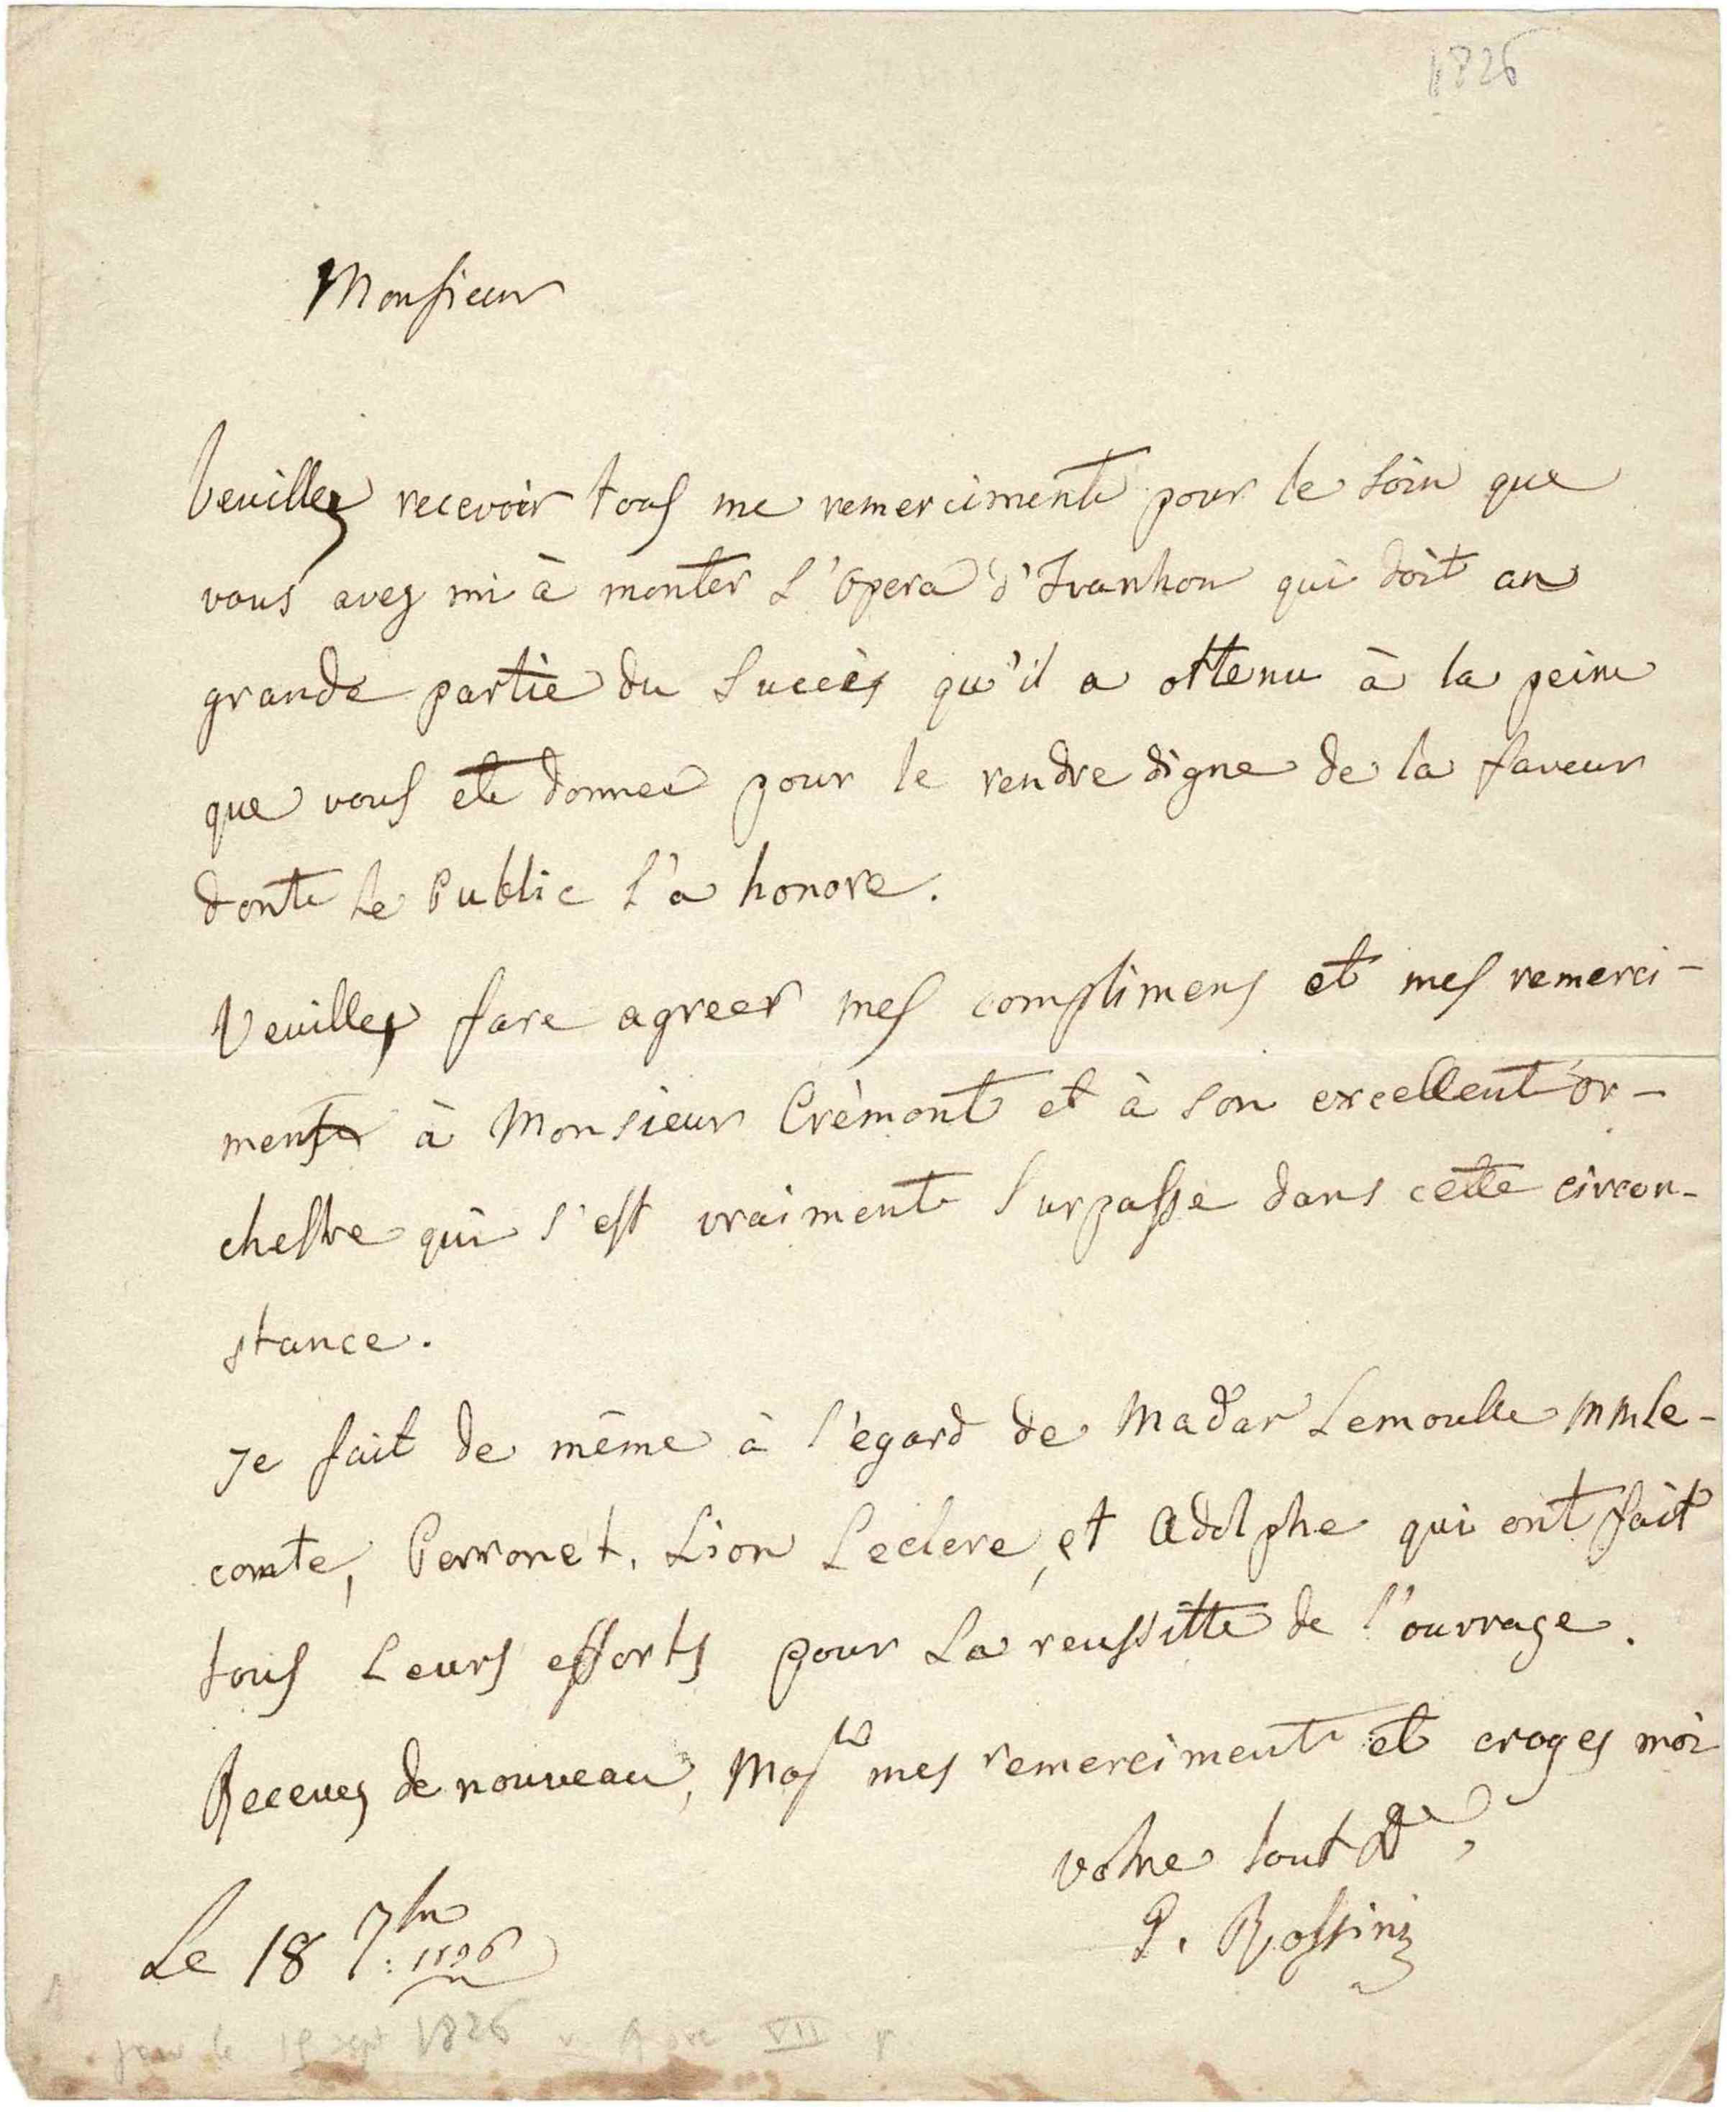 1826
Monsieur
Veuillez recevoir tous me remerciments pour le soin que
vous avez mi à monter L'Opera d'Ivanhou qui doit an
grande partie du Succès qu'il a ottenu à la peine
que vous ete donnee pour le rendre digne de la faveur
donte le Public l'a honore.
Veuillez fare agreer mes complimens et mes remerci-
ments à Monsieur Crèmont et à son excellent or-
chestre qui s'est vraiment Surpasse dans cette circon-
stance.
Je fait de même à l'égard de Madar Lemoulle Mmle-
comte, Perronet, Lion Leclere, et Adolphe qui ont fait
tous Leurs efforts pour La reussitte de l'ouvrage.
Recevez de nouveau, mes remerciments et croyes moi
votre tout
G. Rossini
Le 18 7bre 1826
le 15 sept 1826 VII